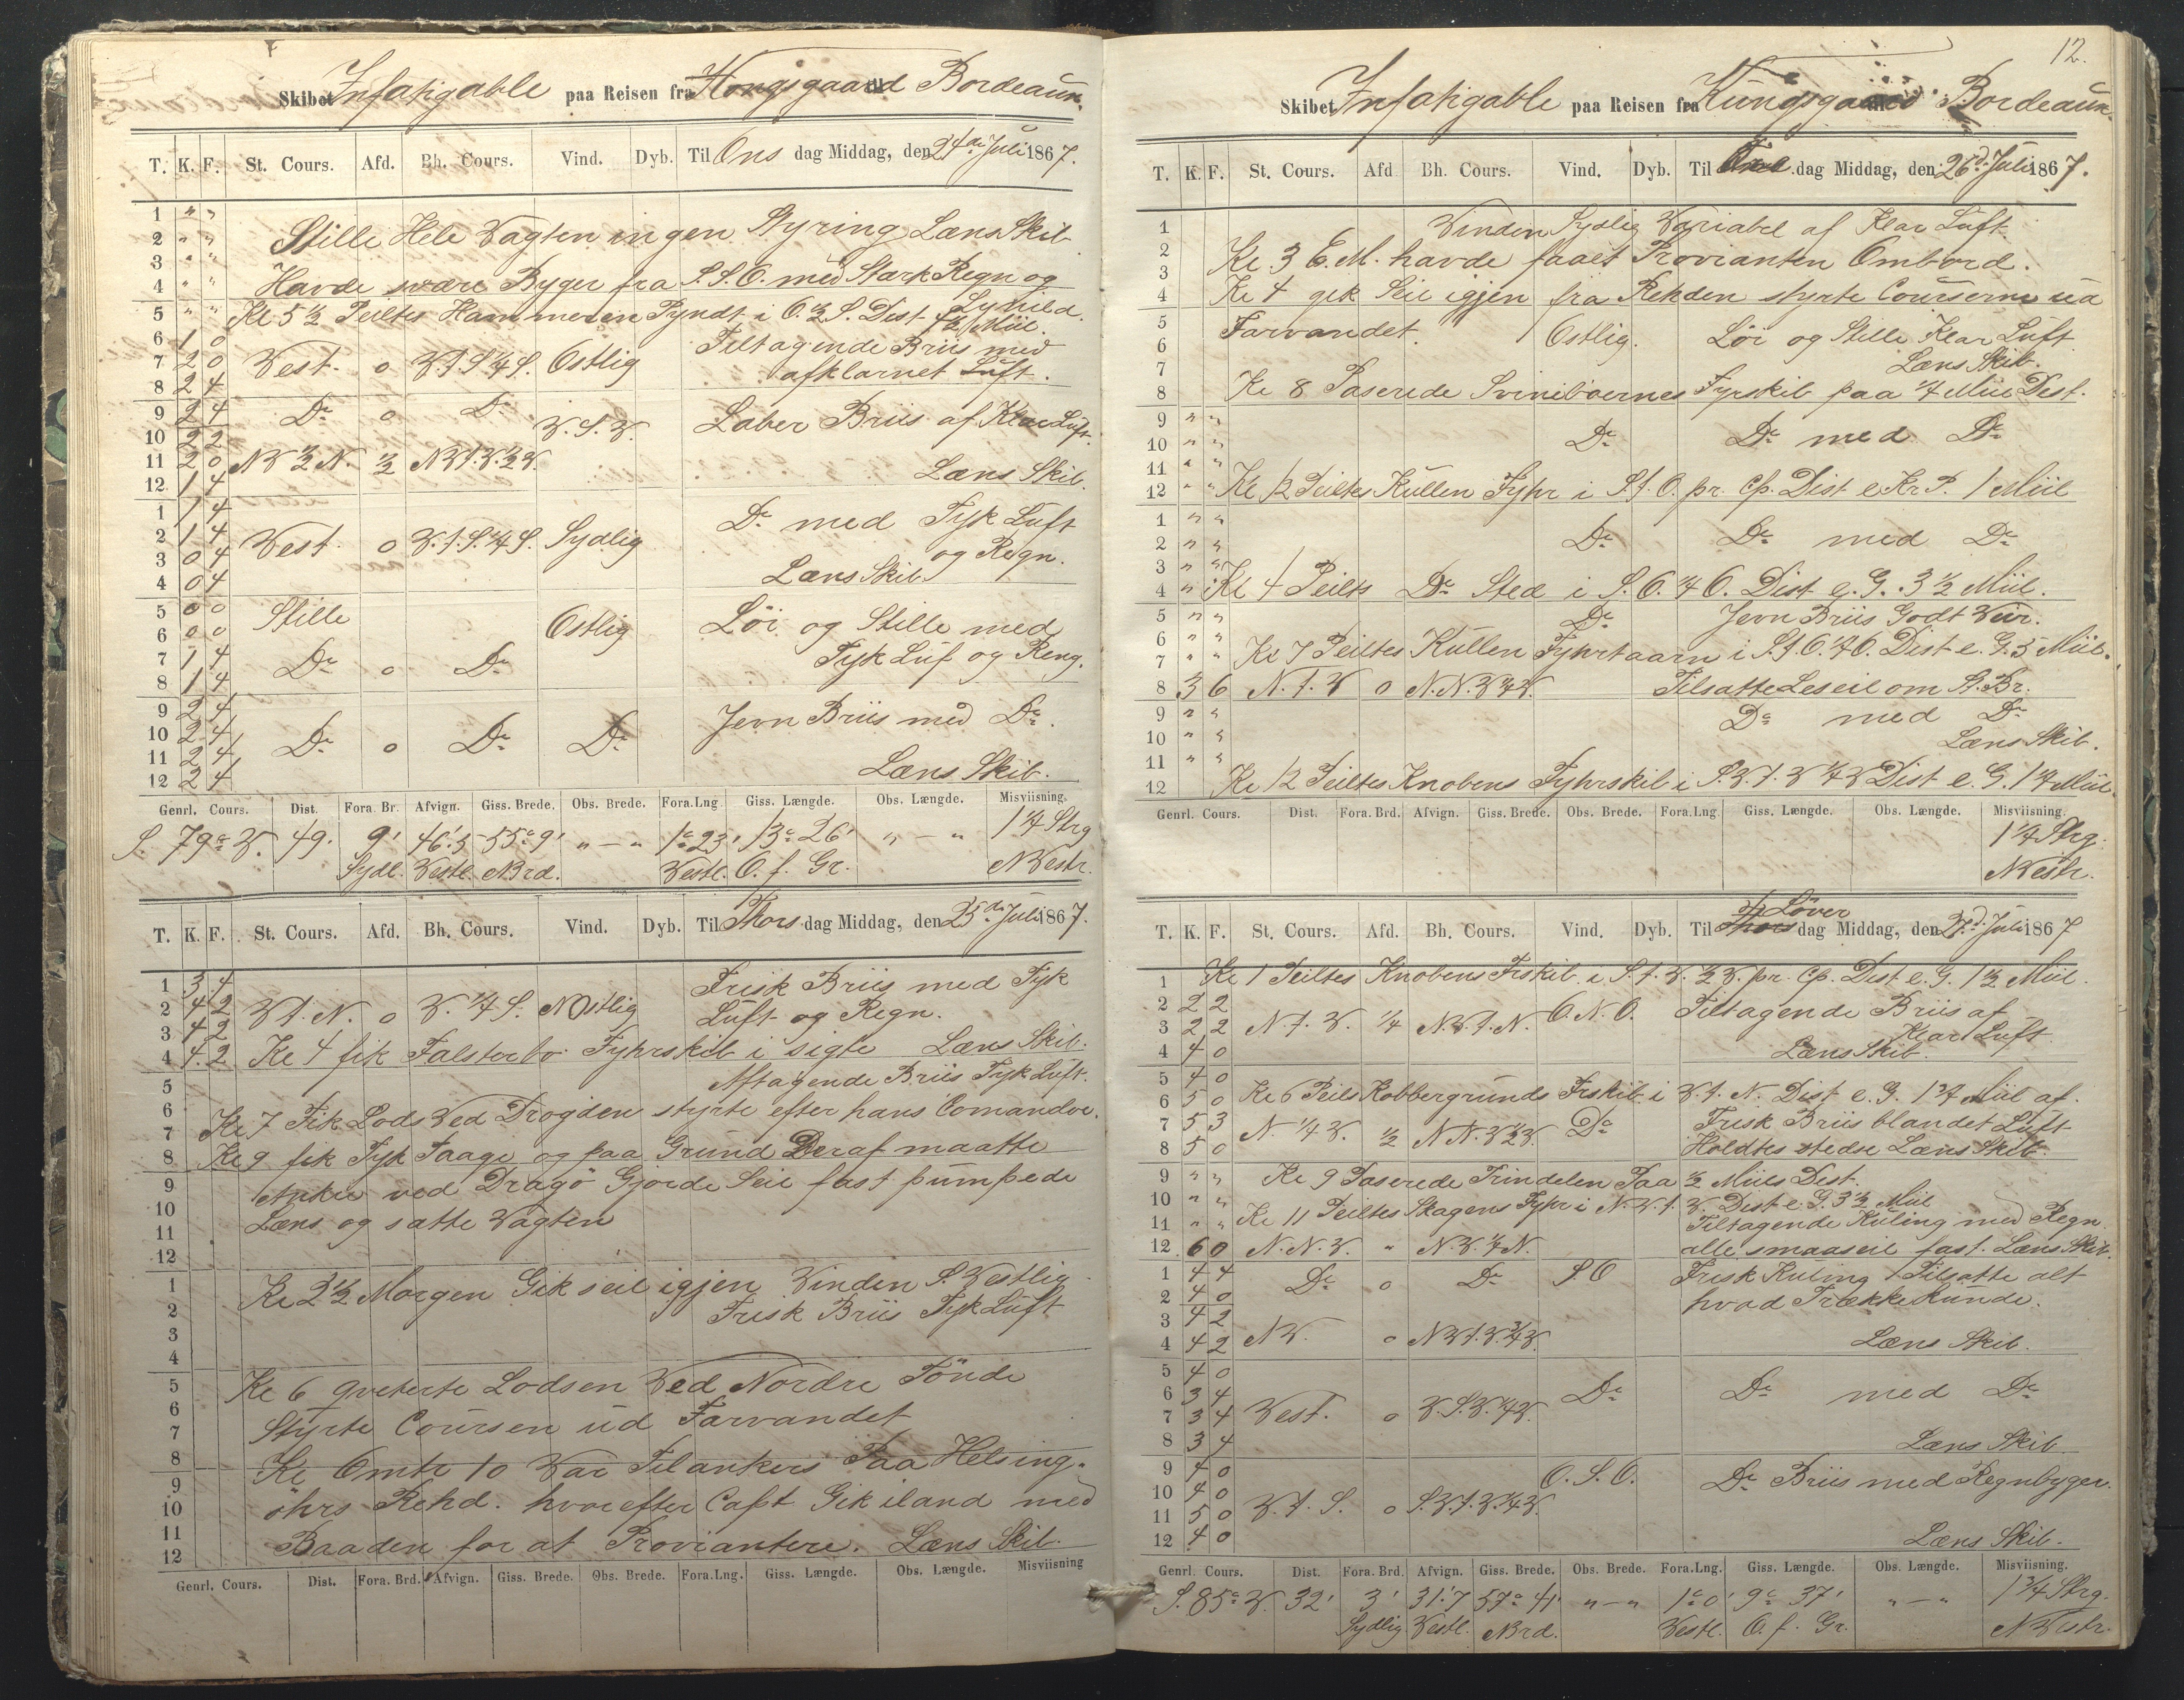 Skibet Infatigable paa Reisen fra Kongsgaard Bordeaux.
T. K. F. St. Cours. Afd. Bh. Cours. Vind. Dyb. Til Ons dag Middag, den 24de Juli 1867.
1 " "
2 " " Stille Hele Vagten ingen Styring Læns Skib
3 " "
4 " " Havde svære Byger fra S.S.O. med Stærk Regn og Lynild.
5 " " Kl 5½ Peiltes Hammeren Fyndt i O.½S. Dist 1½ Miil.
6 1 0 Tiltagende Briis med
7 2 0 Vest. o V.t.S.¼S. Ostlig afklarnet Luft.
8 2 4
9 2 4 Do o Do V.S.V. Laber Briis af Klar Luft.
10 2 2
11 2 0 NV½N. ½ NVt.V.½V. Læns Skib.
12 1 4
1 1 4 Do med Tyk Luft
2 1 4 Vest. o V.t.S.¼S. Sydlig og Regn.
3 0 4
4 0 4 Læns Skib
5 0 0 Stille Ostlig Löi og Stille med
6 0 0
7 1 4 Do o Do Tyk Luf og Reng.
8 1 4
9 2 4 Jevn Briis med Do.
10 2 4 Do o Do Do
11 2 4
12 2 4 Læns Skib.
Genrl. Cours. Dist. Fora. Br. Afvign. Giss. Brede. Obs. Brede. Fora.Lng Giss. Længde. Obs. Længde. Misviisning.
S. 79° V. 49. 9' 46'.5 55° 9' " — " 1° 23' 13° 26' " — " 1¾ Strg
Sydl. Vestl. NBrd. Vestl. O. f. Gr. NVestr.
T. K. F. St. Cours. Afd. Bh. Cours. Vind. Dyb. Til Thors dag Middag, den 25de Juli 1867.
1 3 4 Frisk Briis med Tyk
2 4 2 Vt.N. o V.¼S. NOstlig Luft og Regn.
3 4 2
4 4 2 Kl 4 fik Falsterbo Fyhrskib i sigte Læns Skib.
5 Aftagende Briis Tyk Luft.
6 Kl 7 Fik Lods Ved Drogden styrte efter hans Comandoe.
7
8 Kl 9 fik Tyk Taage og paa Grund Deraf maatte
9 Anker ved Dragö Gjorde Seil fast pumpede
10 Læns og satte Vagten
11
12
1 Kl 2½ Morgen Gik seil igjen Vinden S.Vestlig
2 Frisk Briis Tyk Luft
3
4
5 Kl 6 qviterte Lodsen Ved Nordre Tönde
6
7 Styrte Coursen ud Farvandet
8 Kl Omtr 10 Var Tilankers Paa Helsing-
9
10 öhrs Rehd. hvorefter Capt Gik iland med
11
12 Baaden for at Proviantere. Læns Skib.
Genrl. Cours. Dist. Fora. Brd. Afvign. Giss. Brede. Obs. Brede. Fora.Lng. Giss. Længde. Obs. Længde. Misviisning
12.
Skibet Infatigable paa Reisen fra Kungsgaard Bordeaux.
T. K. F. St. Cours. Afd Bh. Cours. Vind. Dyb. Til dag Middag, den 26d. Juli 1867.
1 Vinden Sydlig Variabel af Klar Luft.
2 Kl 3 E.M. havde faaet Provianten Ombord.
3
4 Kl 4 gik Seil igjen fra Rehden styrte Courserne ud
5 Farvandet. Ostlig. Löi og Stille Klar Luft
6
7 Læns Skib.
8 Kl 8 Paserede Sviniboernes Fyrskib paa ¼ Miil Dist.
9 " "
10 " " Do Do med Do
11 " "
12 " " Kl 12 Peiltes Kullen Fyhr i S.t.O. pr. Cp. Dist e Kr P. 1 Miil
1 " "
2 " " Do Do med Do
3 " "
4 " " Kl 4 Peilts Do Sted i S.O.¼O. Dist e.G. 3½ Miil.
5 " " Do Jevn Briis Godt Veir.
6 " "
7 " " Kl 7 Peiltes Kullen Fyhrtaarn i S.t.O.¼O. Dist e.G. 5 Miil.
8 3 6 N.t.V o N.N.V¾V. Tilsatte Leseil om St.Br.
9 " " Do med Do
10 " " Læns Skib.
11 " "
12 Kl 12 Peiltes Knobens Fyhrskib i S.V.t.V¼V Dist e.G. 1¼ Miil.
Genrl. Cours. Dist. Fora. Brd. Afvign. Giss. Brede. Obs. Brede. Fora.Lng. Giss. Længde. Obs. Længde. Misviisning.
1¾ Strg.
NVestr.
T. K. F. St. Cours. Afd. Bh. Cours. Vind. Dyb. Til Löver dag Middag, den 27.d. Juli 1867
1 Kl 1 Peiltes Knobens Frskib i S.t.V.½V. pr. Cp. Dist e.G. 1½ Miil.
2 2 2 Tiltagende Briis af
3 2 2 N.t.V. ¼ N.V.t.N. O.N.O. Klar Luft
4 4 0 Læns Skib.
5 4 0
6 5 0 Kl 6 Peils Kobbergrunds Frskib i V.t.N. Dist e.G. 1¾ Miil af.
7 5 3 N.¼V. ½ NN.V½V. Do Frisk Briis blandet Luft
8 5 0 Holdtes stedse Læns Skib.
9 " " Kl 9 Paserede Trindelen Paa ½ Miils Dist.
10 " " Kl 11 Peiltes Skagens Fyhr i N.V.t.V. Dist e.G. 3½ Miil
11 " " Tiltagende Kuling med Regn.
12 6 0 N.N.V. " N.V.¼N. alle smaaseil fast. Læns Skib.
1 4 4 Do o Do S O Frisk Kuling Tilsatte alt
2 4 0 hvad Trække Kunde.
3 4 2
4 4 2 NV. o NVt.V.¾V. Læns Skib.
5 4 0
6 3 4 Do Do med Do
7 3 4 Vest. o V.S.V.¼V.
8 3 4 Læns Skib
9 4 0 O.S.O. Do Briis med Regnbyger.
10 4 0
11 5 0 V.t.S. o S.V.t.V.¼V.
12 4 0 Læns Skib.
Genrl. Cours. Dist. Fora. Brd. Afvign. Giss. Brede. Obs. Brede. Fora.Lng. Giss. Længde. Obs. Længde. Misviisning.
S. 85° V. 32' 3' 31'.7 57° 41' " — " 1° 0' 9° 37' " — " 1¾ Strg.
Sydlig Vestl. NBrd. Vestl. O. f. Gr. NVestr.